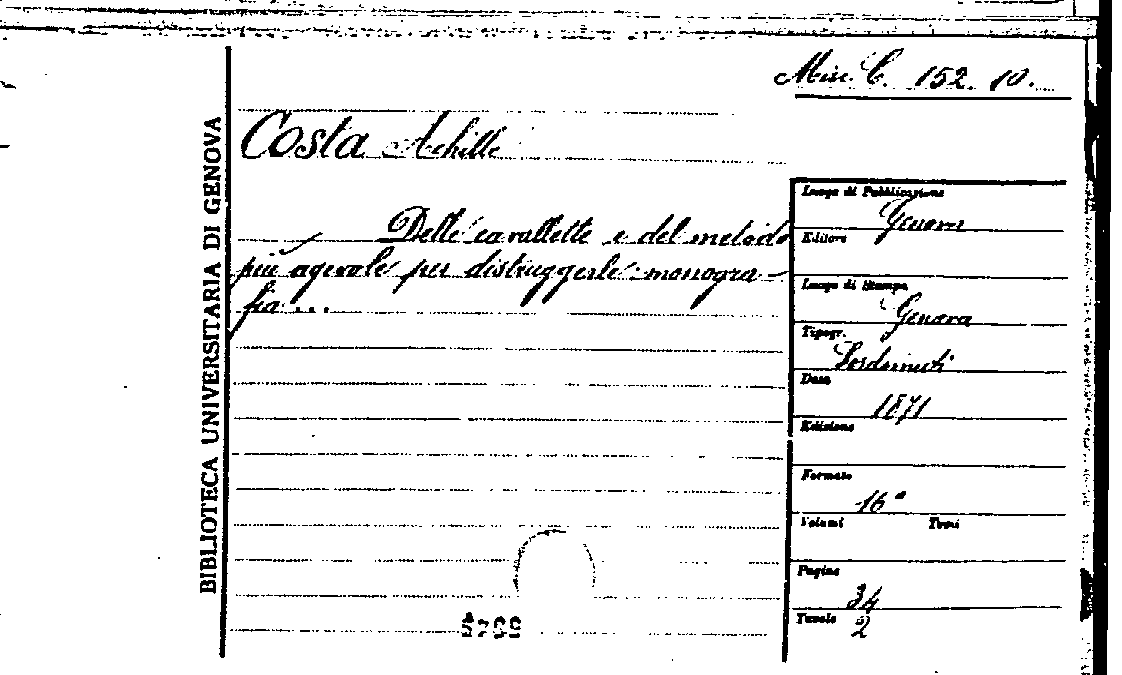 Misc. C. 152. 10.
BIBLIOTECA UNIVERSITARIA DI GENOVA
Costa Achille
Delle cavallette e del metodo
più agevole per distruggerle: monogra-
fia ...
Luogo di Pubblicazione
Genova
Editore
Luogo di Stampa
Genova
Tipogr.
Sordomuti
Data
1871
Edizione
Formato
16°
Volumi Tomi
Pagine
34
Tavole
2